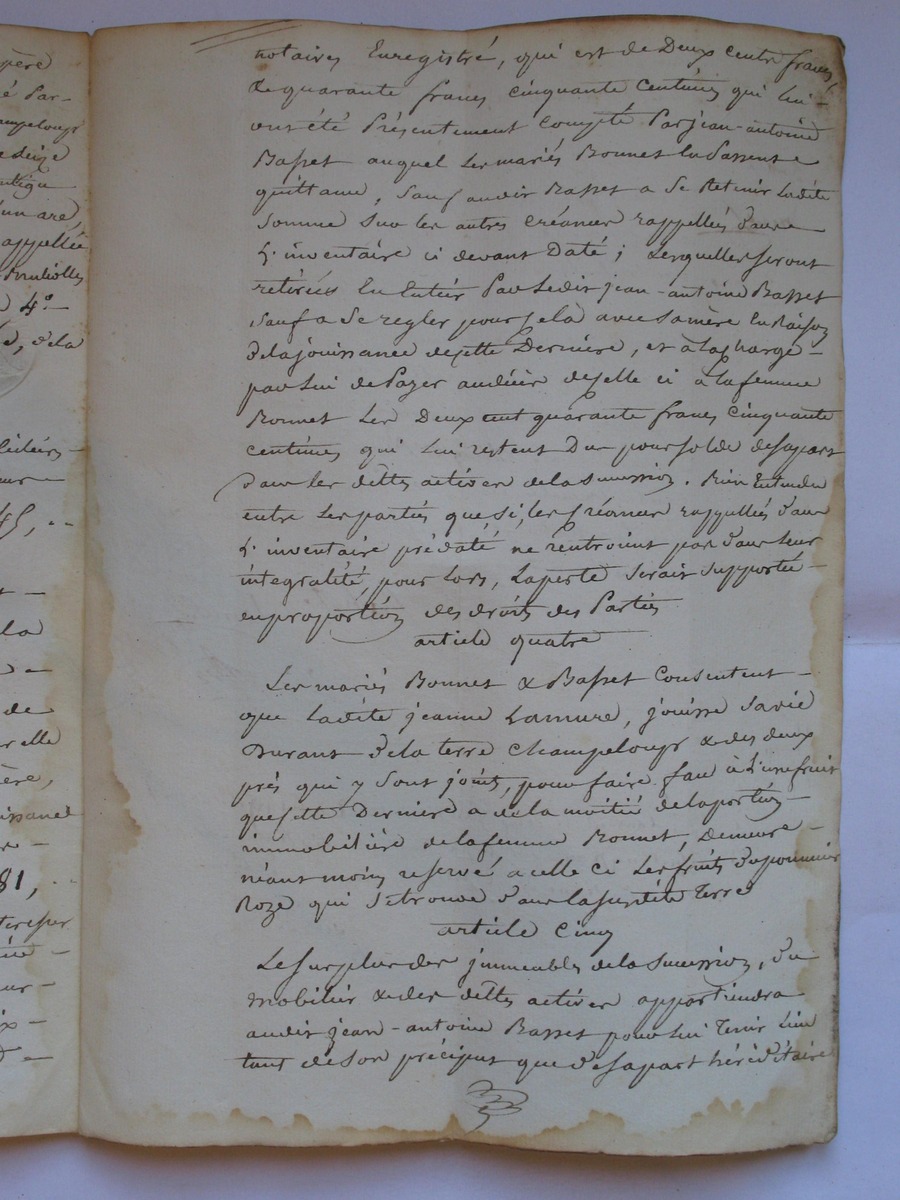 père
é Par-
ampeloup
'un are
appellée
Bruliolles
4º
, de la
45, ..
la
de
elle
ère,
81, ..
notaires Enregistré, qui est de Deux cents francs
& quarante francs cinquante centimes qui lui
ont été Présentement compté Par jean-antoine
Basset auquel Les mariés Bonnet En Passent
quittance, sauf audit Basset a Se Retenir Ladite
Somme sur les autres créances rappellées dans
L'inventaire ci devant Daté ; Lesquelles seront
retirées En Entier Par Ledit jean-antoine Basset
sauf a Se regler pour cela avec sa mère En Raison
de la jouissance de cette Dernière, et à la charge
par lui de Payer au décès de celle ci à la femme
Bonnet Les Deux cent quarante francs cinquante
centimes qui Lui restent Du pour solde de sa part
dans les dettes actives de la succession. Bien Entendu
entre Les parties que, si, les créances rappellées dans
L'inventaire prédaté ne rentroint pas dans Leur
intégralité, pour Lors, La perte serait supportée
en proportion des droits des Parties
article quatre
Les mariés Bonnet & Basset consentent
que Ladite jeanne Lamure, jouisse sa vie
Durant de la terre Champeloup & des deux
prés qui y sont joints, pour faire face à L'usufruit
que cette Derniere a de la moitié de la portion
immobilière de la femme Bonnet, Demeure
néant moins reservé a celle ci Les fruits du pommier
Roze qui se trouve dans la susdite Terre
article Cinq
Le surplus des immeubles de la succession, du
mobilier & des dettes actives appartiendra
audit jean-antoine Basset pour lui Tenir Lieu
tant de son précipus que de sa part héréditaire